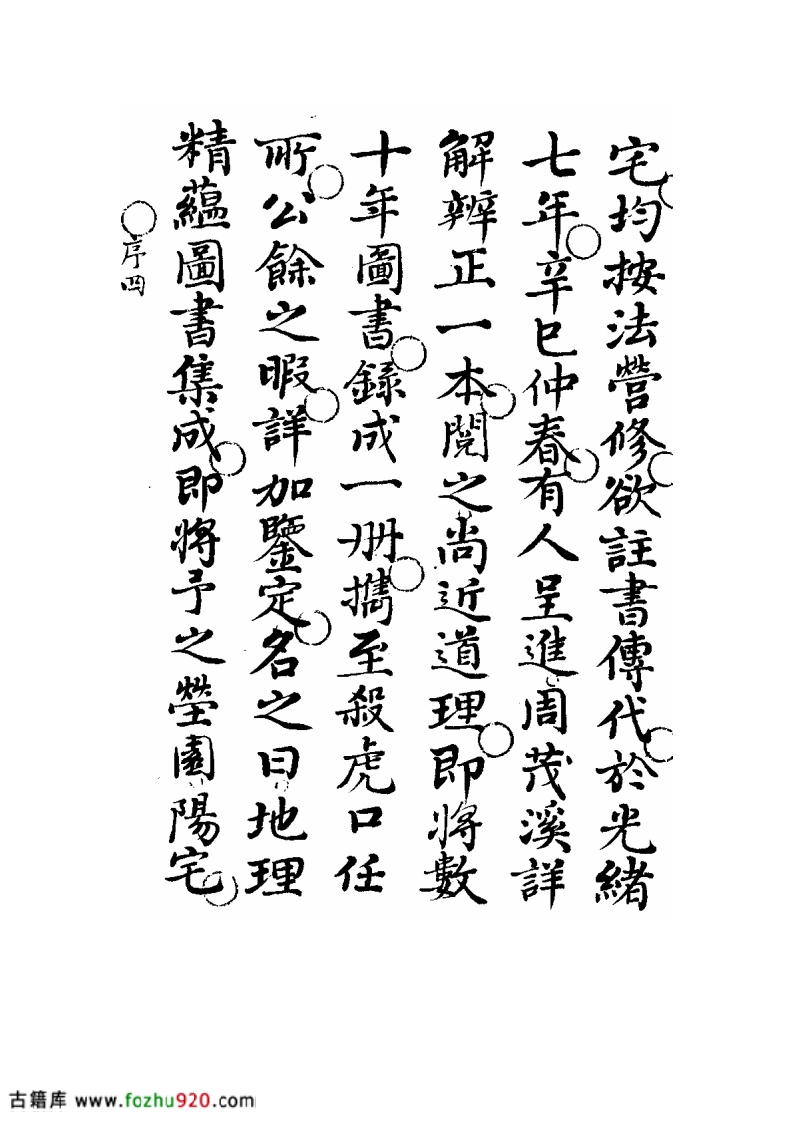 宅均按法營修欲註書傳代於光緒
七年辛巳仲春有人呈進周茂溪詳
解辨正一本閱之尚近道理即將數
十年圖書錄成一册攜至殺虎口任
所公餘之暇詳加鑒定名之曰地理
精蘊圖書集成即將予之塋園陽宅
序四
古籍库 www.fozhu920.com